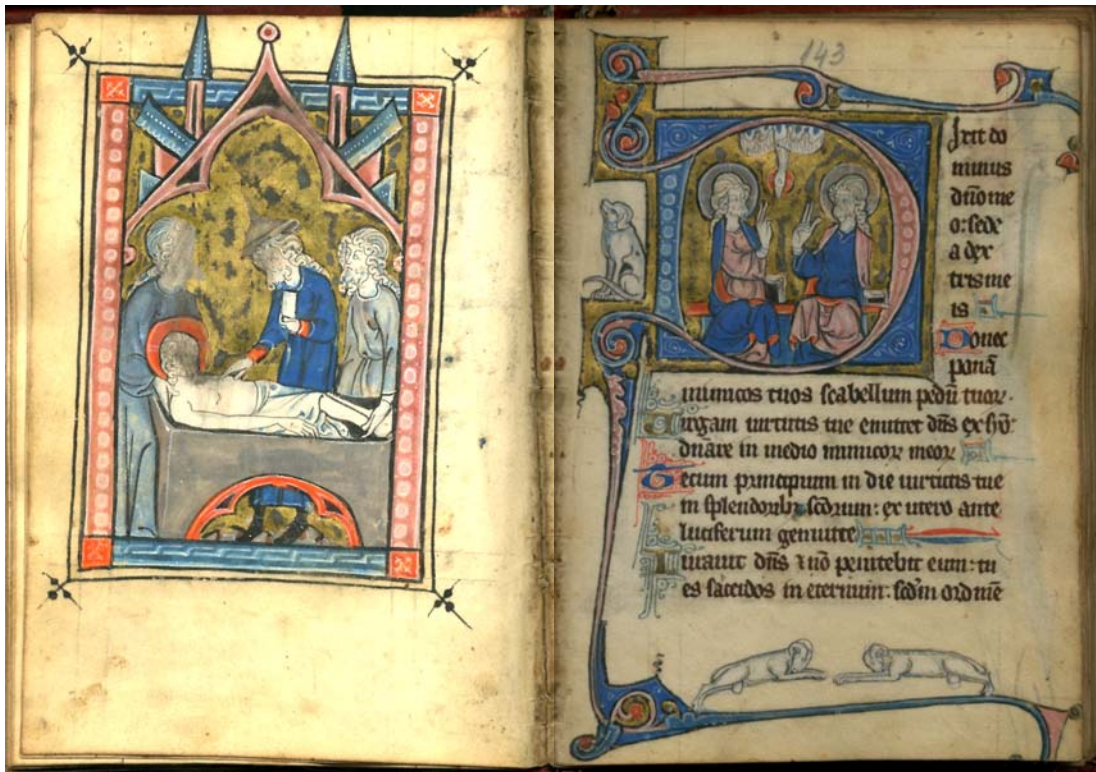 143
Dixit do
minus
dño me
o: sede
a dex
tris me
is
Donec
ponā
inimicos tuos scabellum pedū tuoꝝ.
Uirgam uirtutis tue emittet dñs ex syō:
dñare in medio inimicoꝝ meoꝝ
Tecum principium in die uirtutis tue
in splendoribꝰ scōrum: ex utero ante
luciferum genui te
Iurauit dñs ⁊ nō penitebit eum: tu
es sacerdos in eternum: scd̄m ordinē